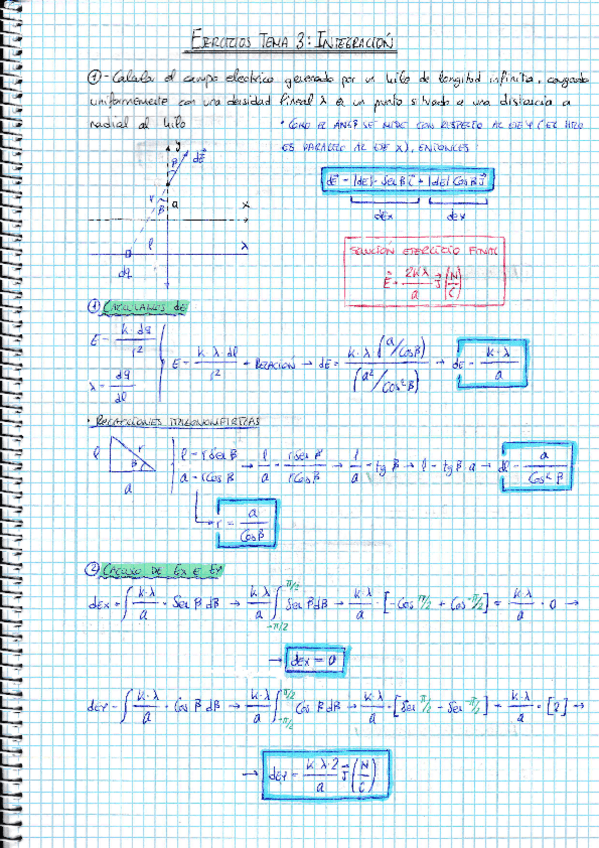 EJERCICIOS TEMA 3: INTEGRACIÓN
①- Calcula el campo electrico generado por un hilo de longitud infinita, cargado
uniformemente con una densidad lineal λ en un punto situado a una distancia a
radial al hilo
• COMO EL ANG β SE MIDE CON RESPECTO AL EJE Y (EL HILO
ES PARALELO AL EJE X), ENTONCES:
y
β dE⃗
r β a x
l λ
dq
dE⃗ = |dE|· Sen β i⃗ + |dE| Cos β j⃗
dEx dEy
SOLUCIÓN EJERCICIO FINAL
E⃗ = 2Kλ/a j⃗ (N/C)
① CALCULAMOS dE
E = k·dq/r²
λ = dq/dl
E = k·λ·dl/r² + RELACIÓN → dE = k·λ (a/cosβ)/(a²/cos²β) → dE = k·λ/a
• RELACIONES TRIGONOMETRICAS
l r β a
l = r Sen β
a = r Cos β
→ l/a = r Sen β/r Cos β → l/a = tg β → l = tg β · a → dl = a/Cos² β
r = a/Cos β
② CALCULO DE Ex E Ey
dEx = ∫ k·λ/a · Sen β dβ → k·λ/a ∫ π/2 -π/2 Sen β dβ → k·λ/a · [-Cos π/2 + Cos -π/2] = k·λ/a · 0 →
→ dEx = 0
dEy = ∫ k·λ/a · Cos β dβ → k·λ/a ∫ π/2 -π/2 Cos β dβ → k·λ/a · [Sen π/2 - Sen -π/2] = k·λ/a · [2] →
→ dEy = k·λ·2/a j⃗ (N/C)